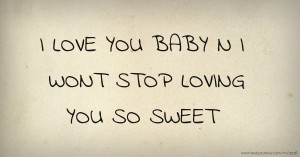 I LOVE YOU BABY N I
WONT STOP LOVING
YOU SO SWEET